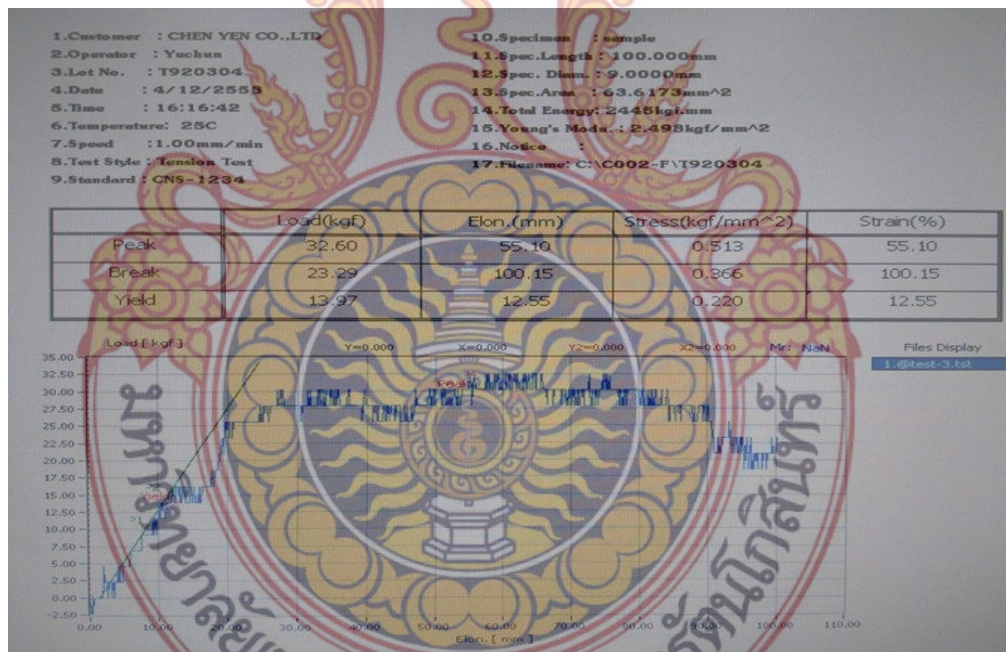 1.Customer : CHEN YEN CO.,LTD
2.Operator : Yuchun
3.Lot No. : T920304
4.Date : 4/12/2553
5.Time : 16:16:42
6.Temperature: 25C
7.Speed :1.00mm/min
8.Test Style : Tension Test
9.Standard : CNS-1234
10.Specimen : sample
11.Spec.Length : 100.000mm
12.Spec. Diam. : 9.0000mm
13.Spec.Area : 63.6173mm^2
14.Total Energy: 2445kgf.mm
15.Young's Modu. : 2.498kgf/mm^2
16.Notice :
17.Filename: C:\C002-F\T920304
Load(kgf) Elon.(mm) Stress(kgf/mm^2) Strain(%)
Peak 32.60 55.10 0.513 55.10
Break 23.29 100.15 0.366 100.15
Yield 13.97 12.55 0.220 12.55
Load [ kgf ] Y=0.000 X=0.000 Y2=0.000 X2=0.000 Mr: NaN Files Display
1.@test-3.tst
35.00
32.50
30.00
27.50
25.00
22.50
20.00
17.50
15.00
12.50
10.00
7.50
5.00
2.50
0.00
-2.50
Peak
Yield
0.00 10.00 20.00 30.00 40.00 50.00 60.00 70.00 80.00 90.00 100.00 110.00
Elon. [ mm ]